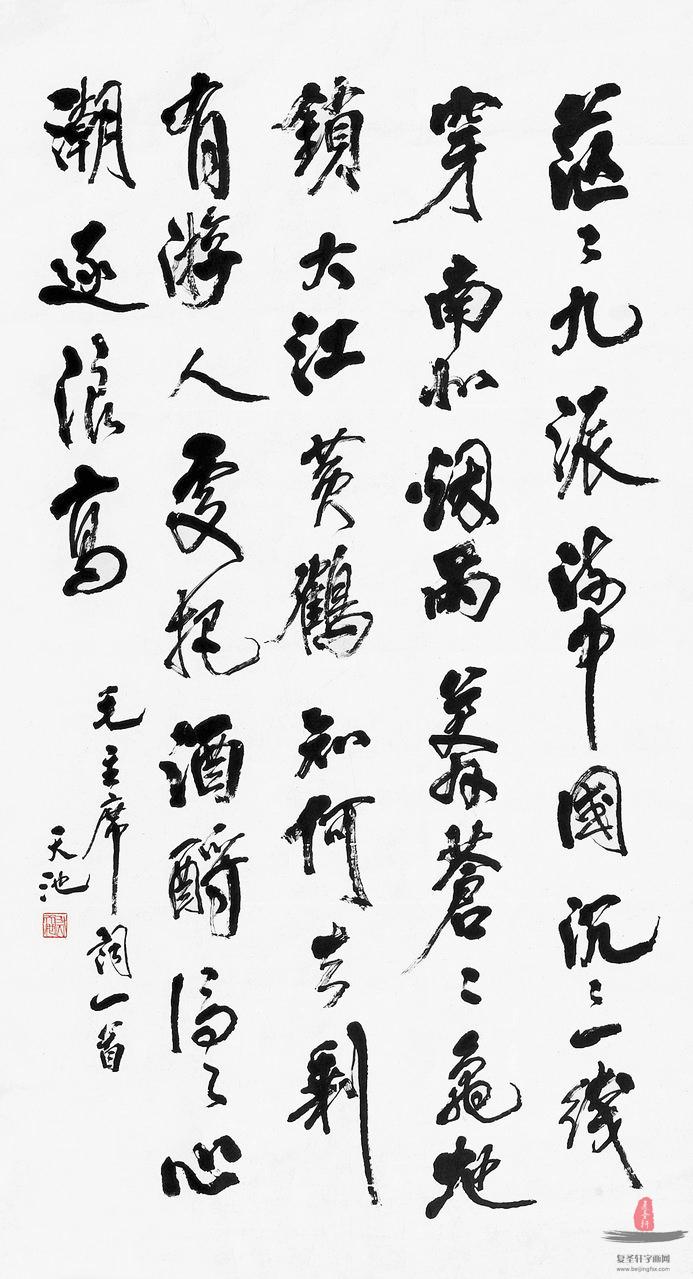 茫〻九派流中國沉〻一線
穿南北烟雨莽蒼〻龜蛇
鎖大江黄鶴知何去剩
有游人處把酒酹滔〻心
潮逐浪高
毛主席詞一首
天池
复圣轩字画网
www.beijingfsx.com